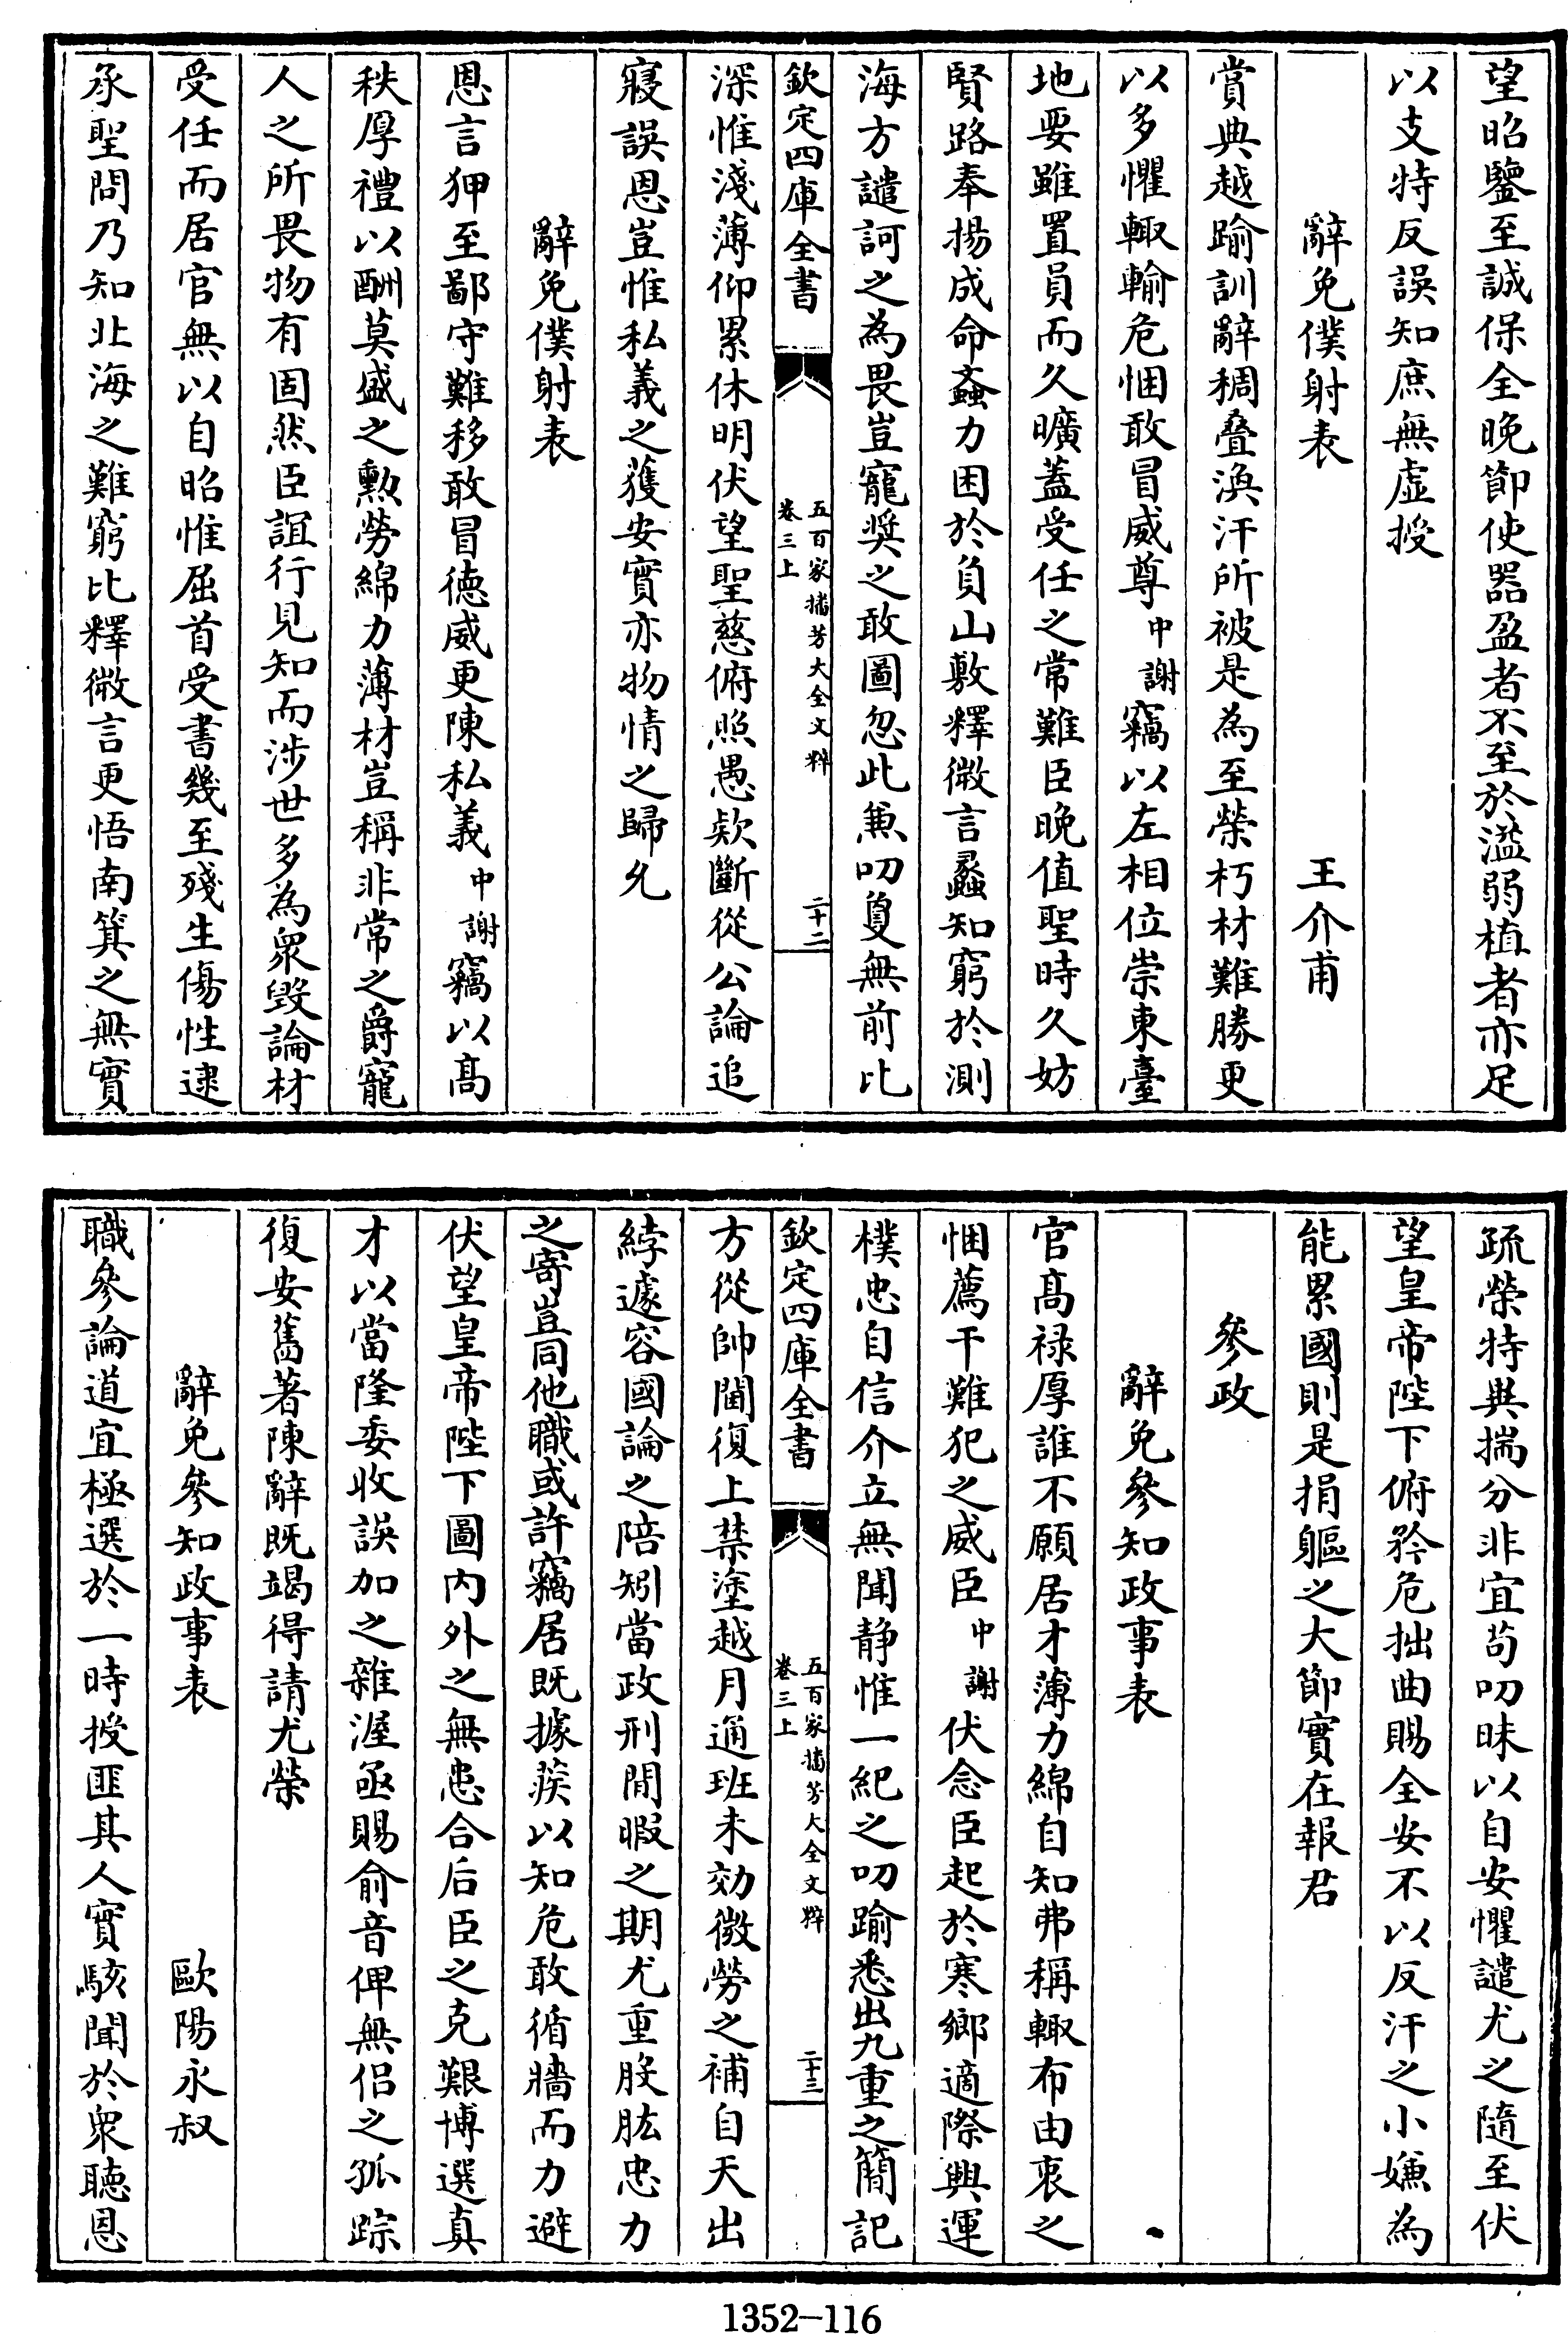 望昭鑒至誠保全晚節使器盈者不至於溢弱植者亦足
以支特反誤知庶無虚授
辭免僕射表　王介甫
賞典越踰訓辭稠疊渙汗所被是為至榮朽材難勝更
以多懼輙輸危悃敢冒威尊中謝竊以左相位崇東臺
地要雖置員而久曠蓋受任之常難臣晚值聖時久妨
賢路奉揚成命螡力困於負山敷釋微言蠡知窮於測
海方譴訶之為畏豈寵奬之敢圖忽此兼叨敻無前比
欽定四庫全書
五百家播芳大全文粹
卷三上
二十二
深惟淺薄仰累休明伏望聖慈俯照愚欵斷從公論追
寢誤恩豈惟私義之獲安實亦物情之歸允
辭免僕射表
恩言狎至鄙守難移敢冒徳威更陳私義中謝竊以髙
秩厚禮以酬莫盛之勲勞綿力薄材豈稱非常之爵寵
人之所畏物有固然臣誼行見知而涉世多為衆毀論材
受任而居官無以自昭惟屈首受書幾至殘生傷性逮
承聖問乃知北海之難窮比釋微言更悟南箕之無實
疏榮特典揣分非宜苟叨昧以自安懼譴尤之隨至伏
望皇帝陛下俯矜危拙曲賜全安不以反汗之小嫌為
能累國則是捐軀之大節實在報君
參政
辭免參知政事表
官髙禄厚誰不願居才薄力綿自知弗稱輙布由衷之
悃薦干難犯之威臣中謝伏念臣起於寒鄉適際興運
樸忠自信介立無聞静惟一紀之叨踰悉出九重之簡記
欽定四庫全書
五百家播芳大全文粹
卷三上
二十三
方從帥閫復上禁塗越月通班未効微勞之補自天出
綍遽容國論之陪矧當政刑閒暇之期尤重股肱忠力
之寄豈同他職或許竊居既據蒺以知危敢循牆而力避
伏望皇帝陛下圖内外之無患合后臣之克艱博選真
才以當隆委收誤加之雜渥亟賜俞音俾無侣之孤踪
復安舊著陳辭既竭得請尤榮
辭免參知政事表　歐陽永叔
職參論道宜極選於一時授匪其人實駭聞於衆聴恩
1352—116